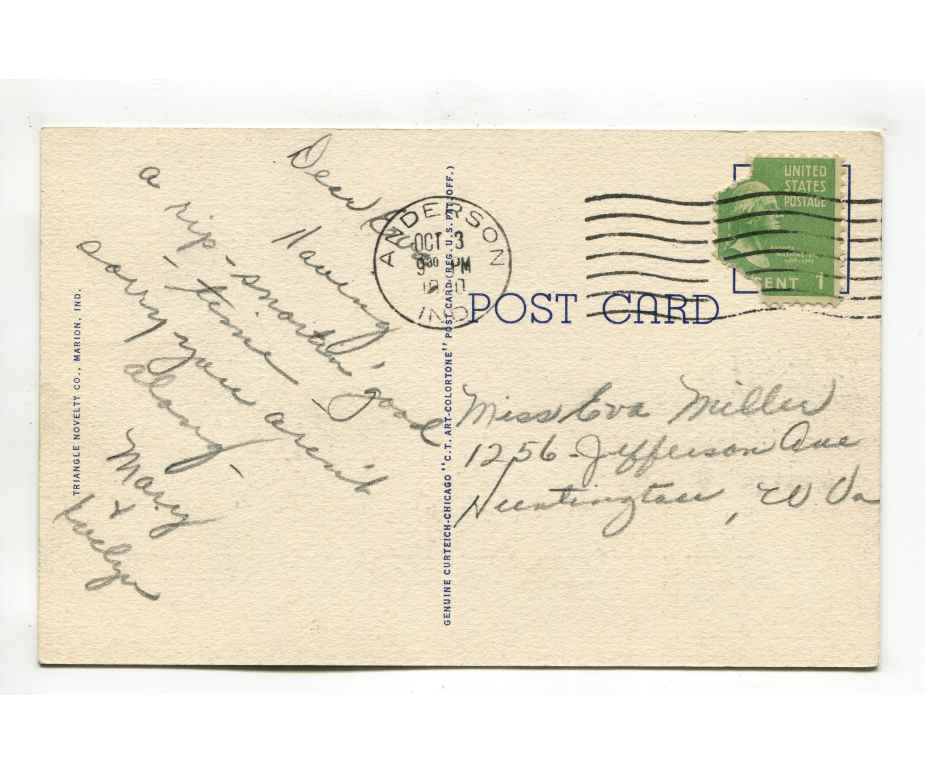 Dear Eva,
Having
a rip-snortin' good
-time-
sorry you aren't
along-
Mary
+
Evelyn
TRIANGLE NOVELTY CO., MARION, IND.
GENUINE CURTEICH-CHICAGO "C.T. ART-COLORTONE" POST CARD (REG. U.S. PAT. OFF.)
ANDERSON
OCT 3
9 30 PM
IND
UNITED
STATES
POSTAGE
CENT 1
POST CARD
Miss Eva Miller
1256 Jefferson Ave
Huntington, W Va